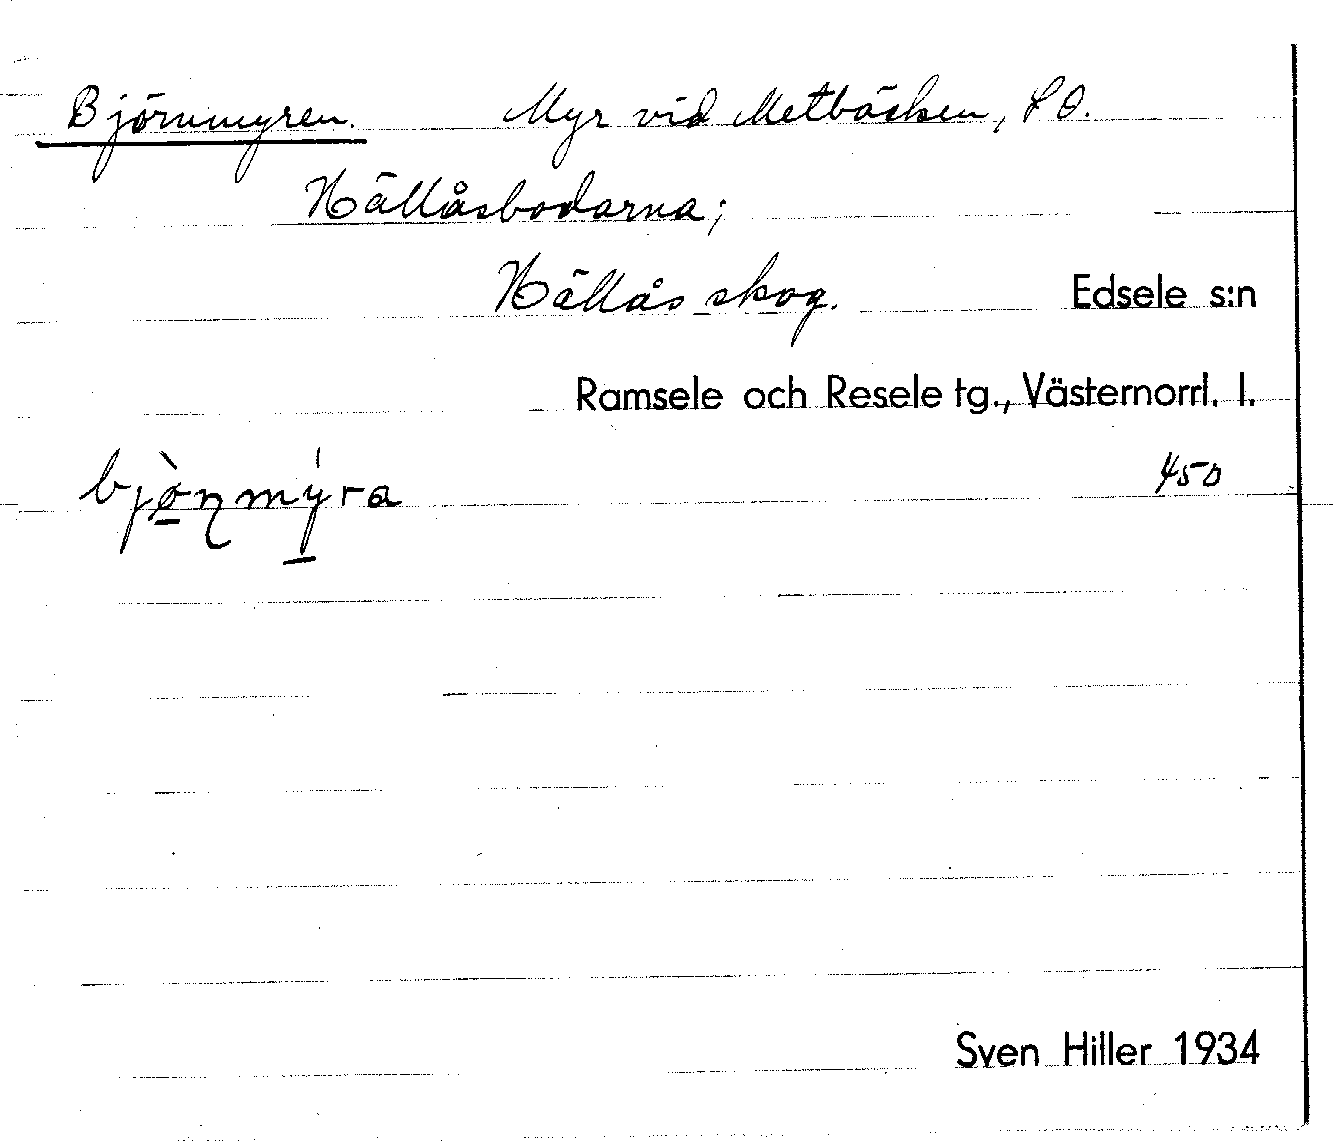 Björnmyren. Myr vid Metbäcken, SO.
Hällåsbodarna;
Hällås skog. Edsele s:n
Ramsele och Resele tg., Västernorrl. l.
bjònmýra 450
Sven Hiller 1934